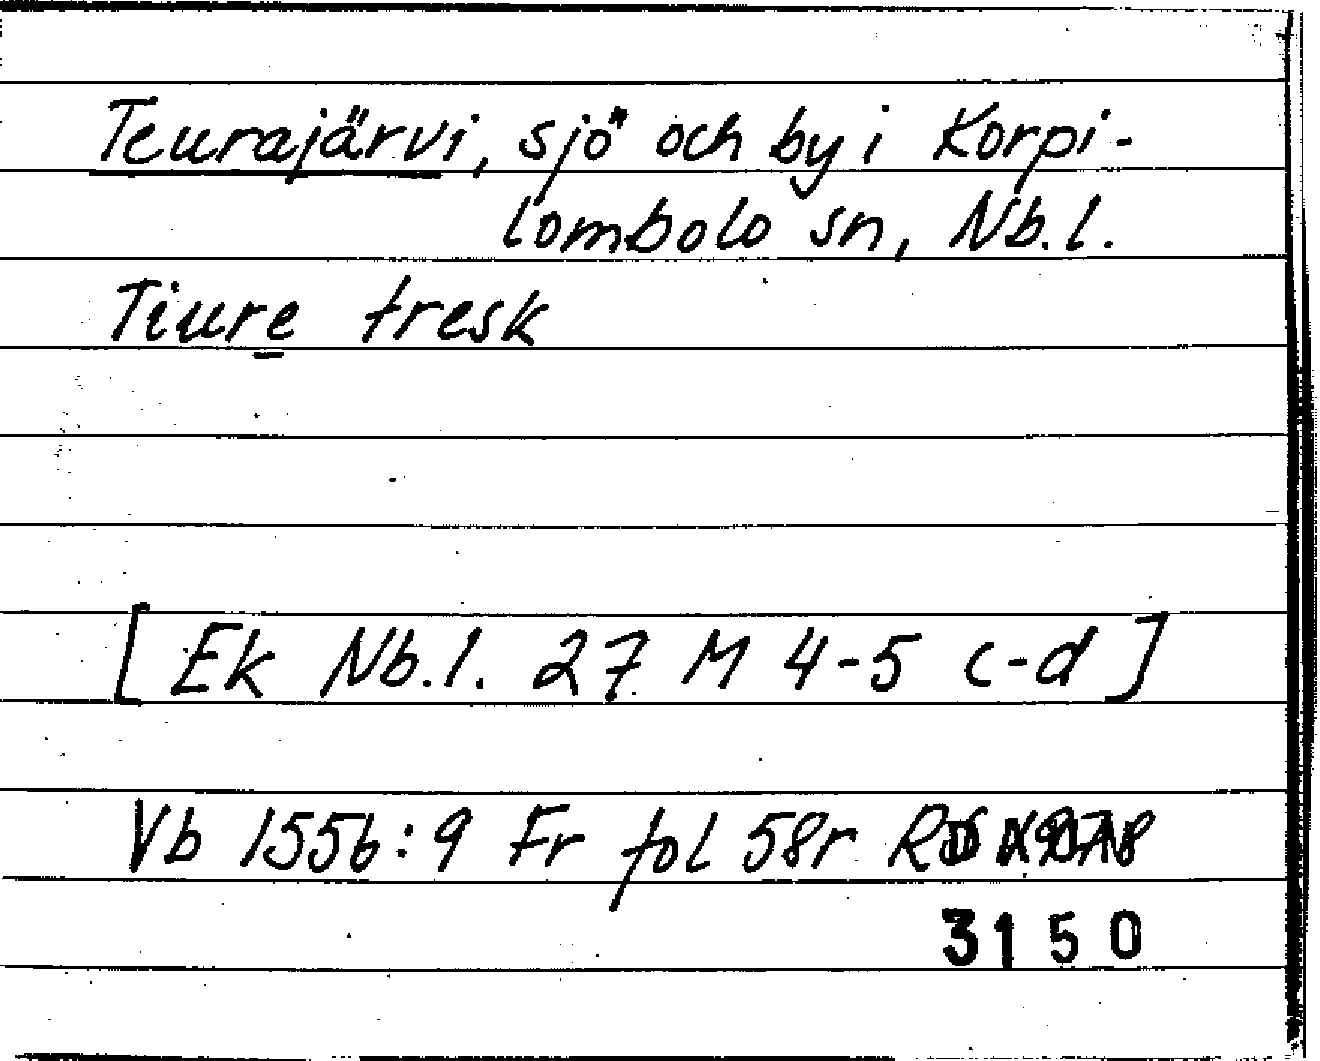 Teurajärvi, sjö och by i Korpi-
lombolo sn, Nb.l.
Tiure tresk
[Ek Nb.l. 27 M 4-5 c-d]
Vb 1556:9 Fr fol 58r
3150